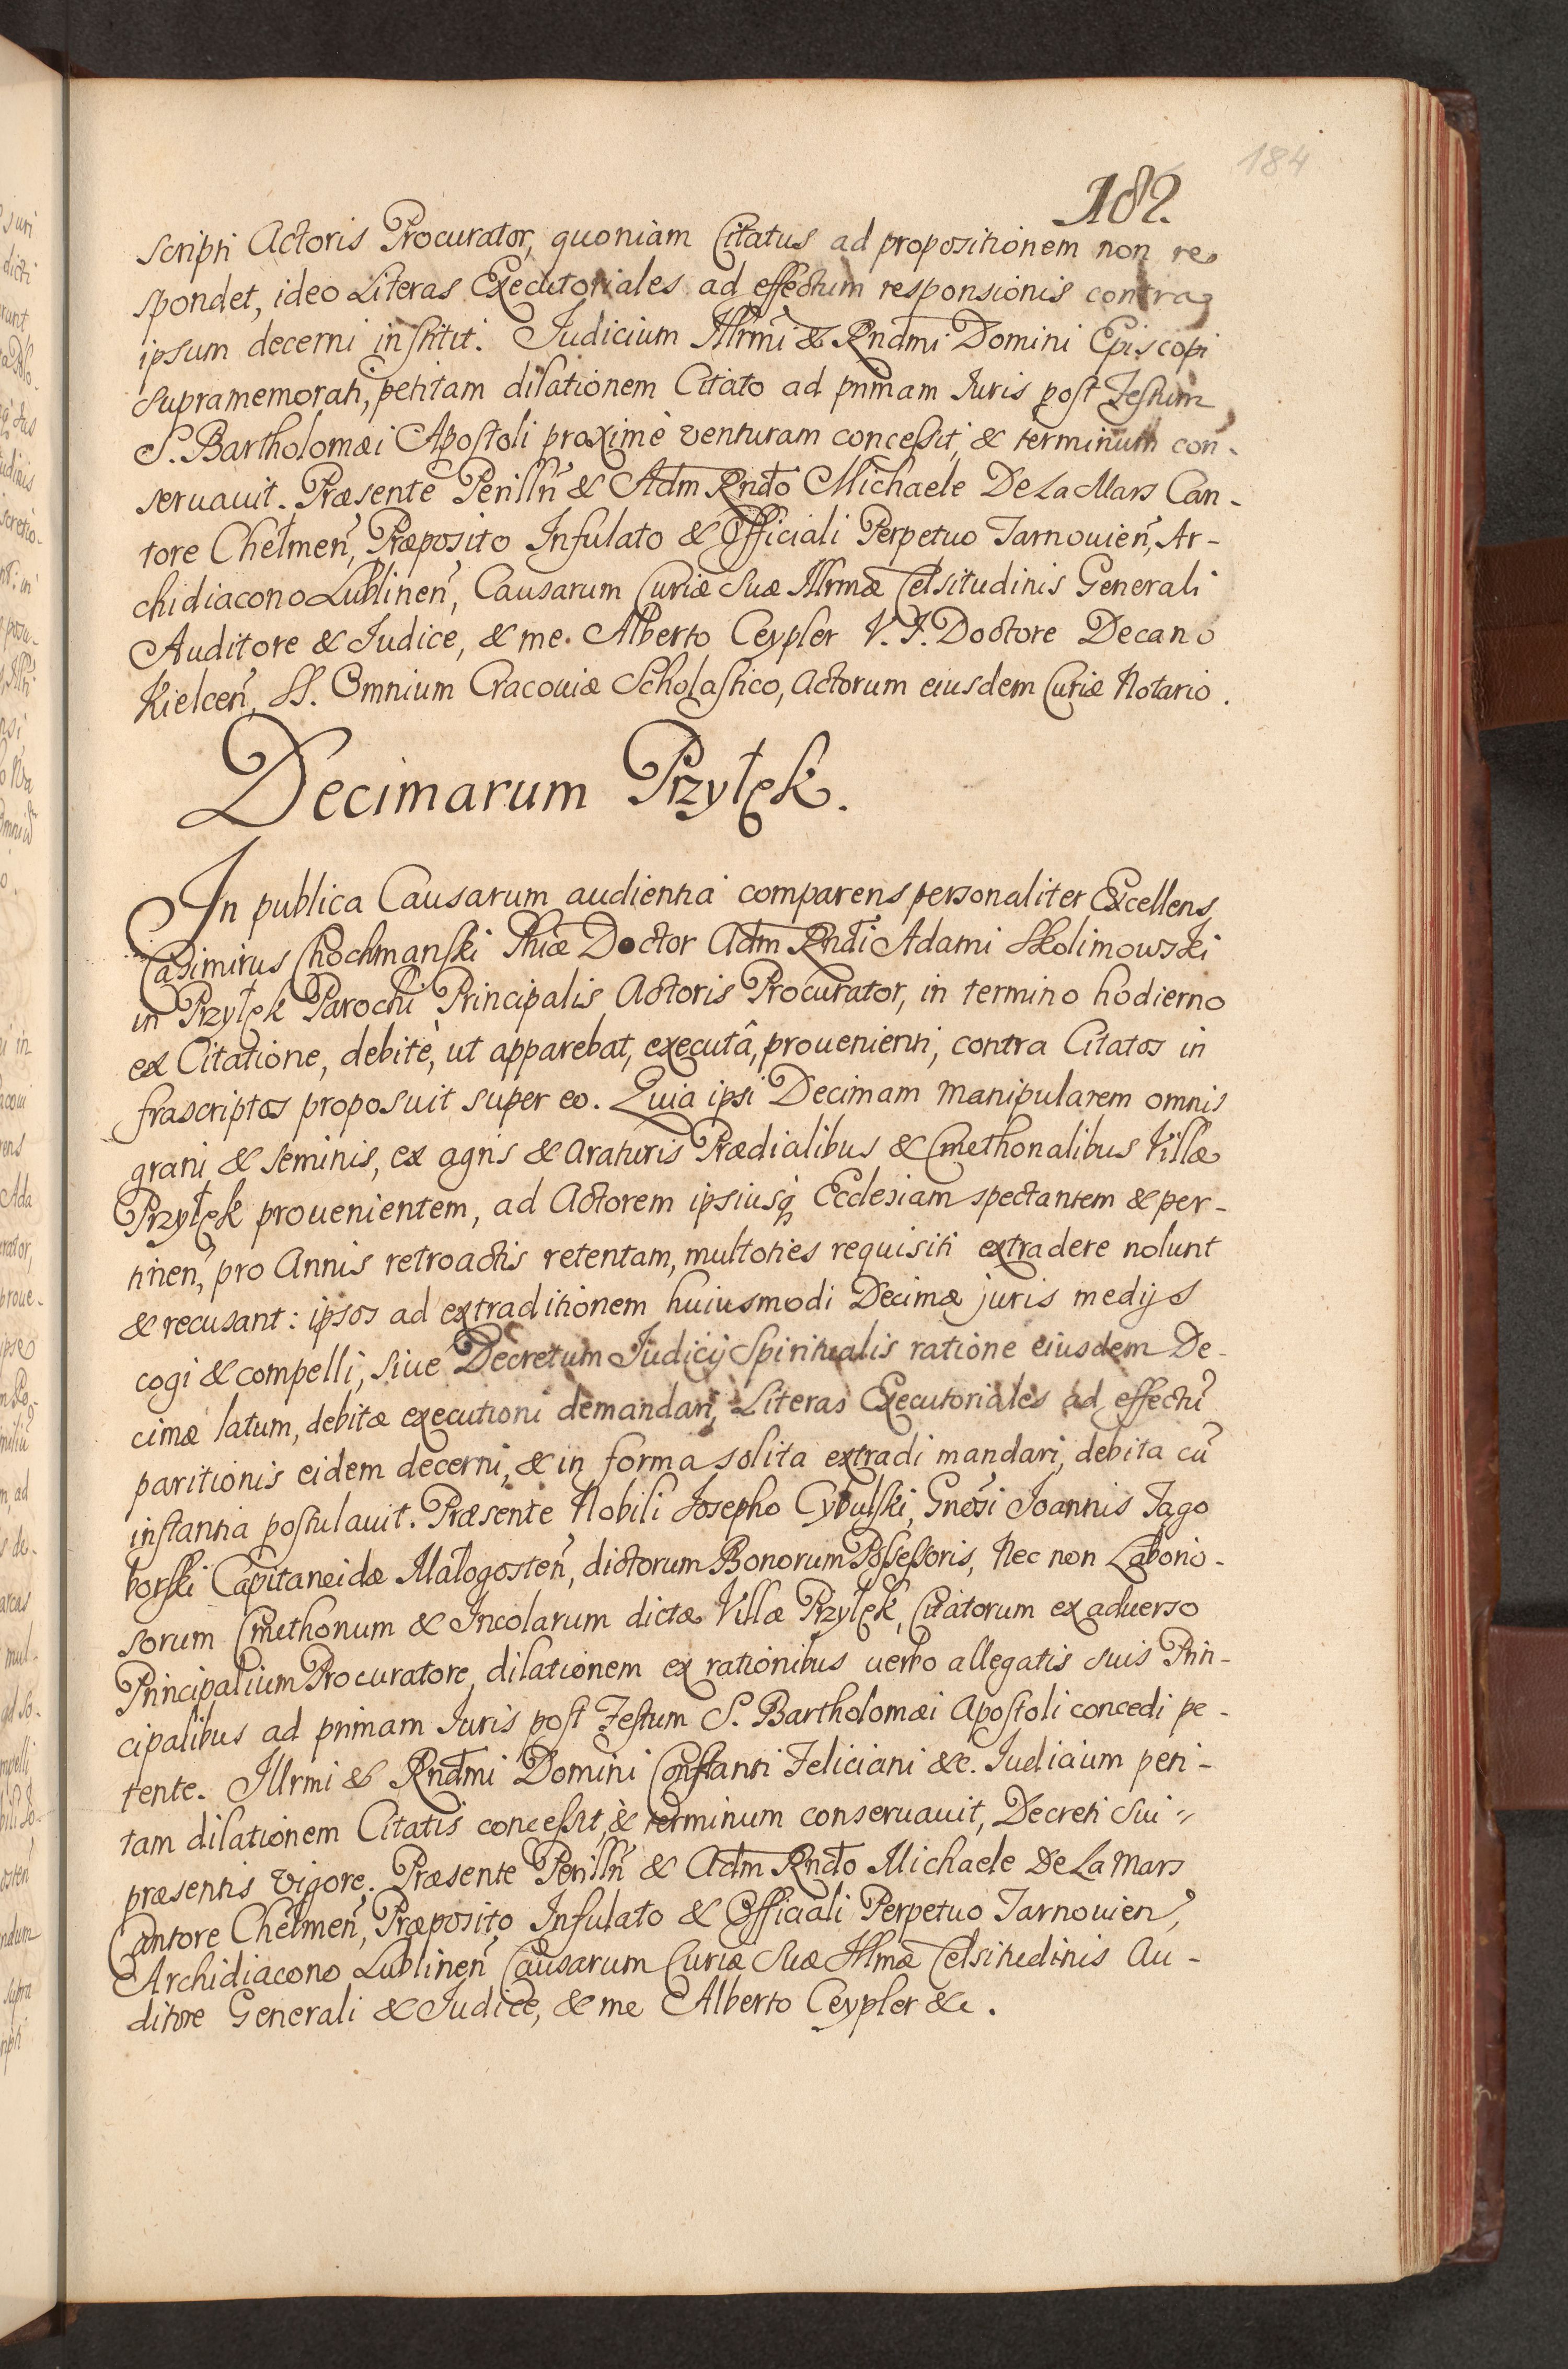 184
182.
scripti Actoris Procurator, quoniam Citatus ad propositionem non re
spondet, ideo Literas Executoriales ad effectum responsionis contra
ipsum decerni institit. Judicium Illrmi & Rndmi Domini Episcopi
supramemorati, petitam dilationem Citato ad primam Juris post Festum
S. Bartholomæi Apostoli proximè venturam concessit, & terminum con-
seruauit. Præsente Perilln̄ & Adm Rndo Michaele De La Mars Can-
tore Chełmen̄, Præposito Infulato & Officiali Perpetuo Tarnouien̄, Ar-
chidiacono Lublinen̄, Causarum Curiæ Suæ Illrmæ Celsitudinis Generali
Auditore & Judice, & me Alberto Ceypler V. J. Doctore Decano
Kielcen̄, SS. Omnium Cracouiæ Scholastico, Actorum eiusdem Curiæ Notario.
Decimarum Przyłęk.
In publica Causarum audientia comparens personaliter Excellens
Casimirus Chochmanski Phiæ Doctor Adm Rndi Adami Skolimowski
in Przyłęk Parochi Principalis Actoris Procurator, in termino hodierno
ex Citatione, debitè, ut apparebat, executâ, prouenienti, contra Citatos in
frascriptos proposuit super eo. Quia ipsi Decimam manipularem omnis
grani & seminis, ex agris & araturis Prædialibus & Cmethonalibus Villæ
Przyłęk prouenientem, ad Actorem ipsiusq́; Ecclesiam spectantem & per-
tinen̄, pro Annis retroactis retentam, multoties requisiti extradere nolunt
& recusant: ipsos ad extraditionem huiusmodi Decimæ juris medijs
cogi & compelli, siue Decretum Judicij Spiritualis ratione eiusdem De-
cimæ latum, debitæ executioni demandari, Literas Executoriales ad effectū
paritionis eidem decerni, & in forma solita extradi mandari, debita cū
instantia postulauit. Præsente Nobili Josepho Cybulski, Gnesi Joannis Jago
borski Capitaneidæ Małogosten̄, dictorum Bonorum Possessoris, Nec non Laborio-
sorum Cmethonum & Incolarum dictæ Villæ Przyłęk, Citatorum ex aduerso
Principalium Procuratore, dilationem ex rationibus uerbo allegatis suis Prin-
cipalibus ad primam Juris post Festum S. Bartholomæi Apostoli concedi pe-
tente. Illrmi & Rndmi Domini Constanti Feliciani &c. Judicium peti-
tam dilationem Citatis concessit, & terminum conseruauit, Decreti sui
præsentis vigore. Præsente Perilln̄ & Adm Rndo Michaele De La Mars
Cantore Chełmen̄, Præposito Infulato & Officiali Perpetuo Tarnouien̄,
Archidiacono Lublinen̄ Causarum Curiæ Suæ Illmæ Celsitudinis Au-
ditore Generali & Judice, & me Alberto Ceypler &c.